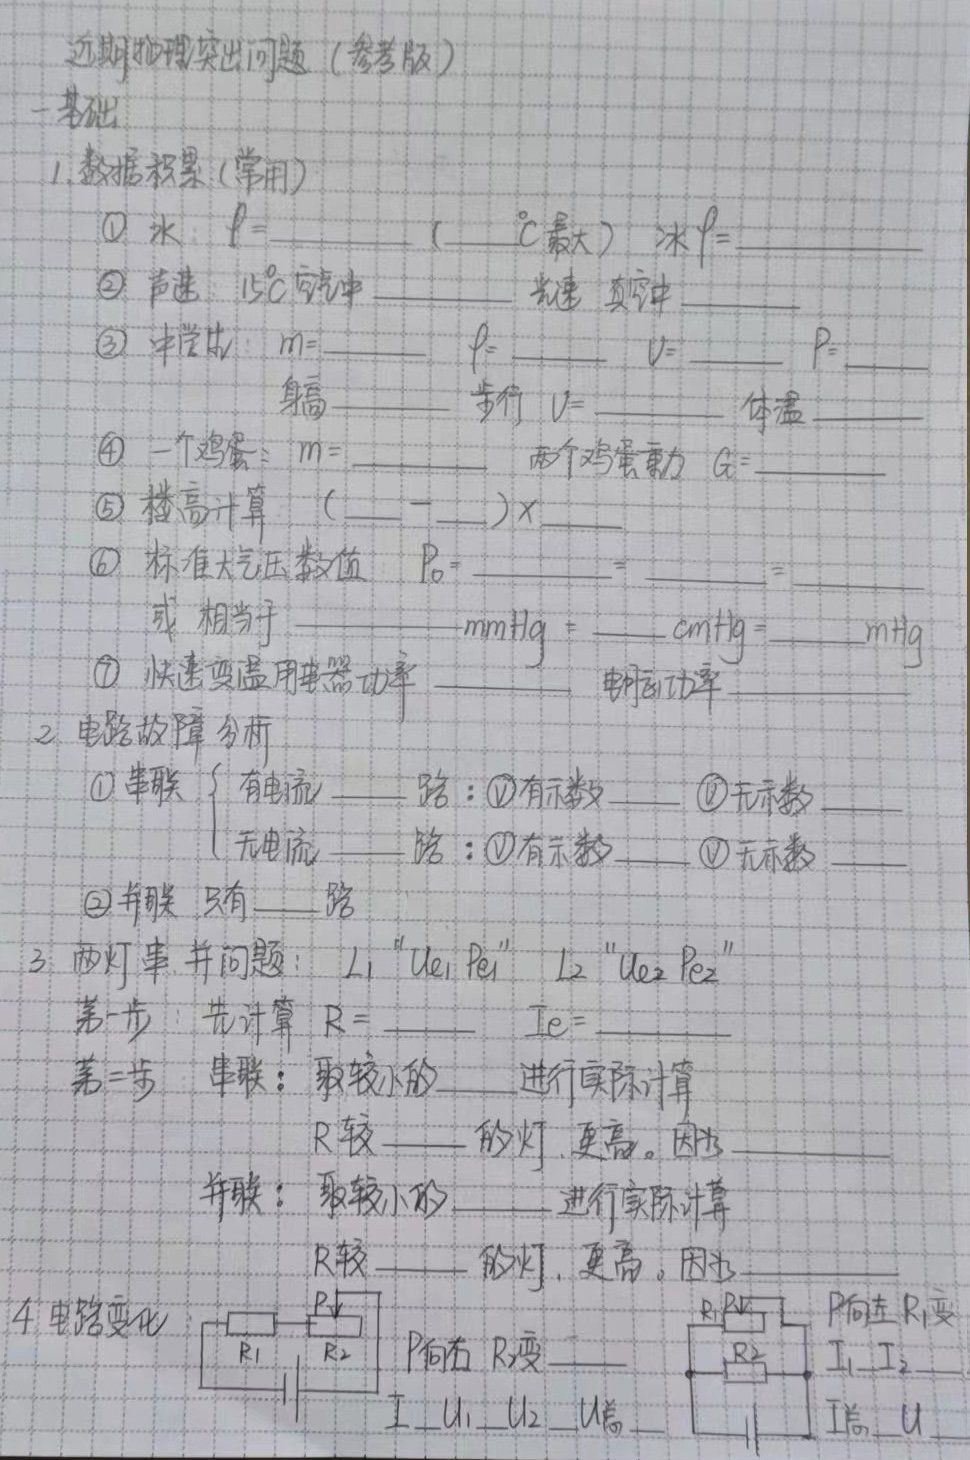 近期物理突出问题（参考版）
一基础
1.数据积累（常用）
① 水： ρ=______（____℃最大） 冰ρ=______
② 声速 15℃空气中______ 光速 真空中______
③ 中学生： m=______ ρ=______ V=______ P=____
身高______ 步行 v=______ 体温______
④ 一个鸡蛋： m=______ 两个鸡蛋重力 G=______
⑤ 楼高计算 （____－____）×____
⑥ 标准大气压数值 P₀=______=______=______
或 相当于______mmHg=____cmHg=____mHg
⑦ 快速变温用电器功率______ 电脑功率______
2 电路故障分析
①串联 { 有电流____路：Ⓥ有示数____ Ⓥ无示数____
无电流____路：Ⓥ有示数____ Ⓥ无示数____
②并联 只有____路
3 两灯串并问题： L₁ "Ue₁ Pe₁" L₂ "Ue₂ Pe₂"
第一步：先计算 R=____ Ie=______
第二步 串联：取较小的____进行实际计算
R较____的灯，更亮。因为______
并联：取较小的____进行实际计算
R较____的灯，更亮。因为______
4 电路变化：
P
R1 R2
P向右 R₂变____
I__U₁__U₂__U总__
R₁ P
R2
P向左 R₁变
I₁__I₂__
I总__U__